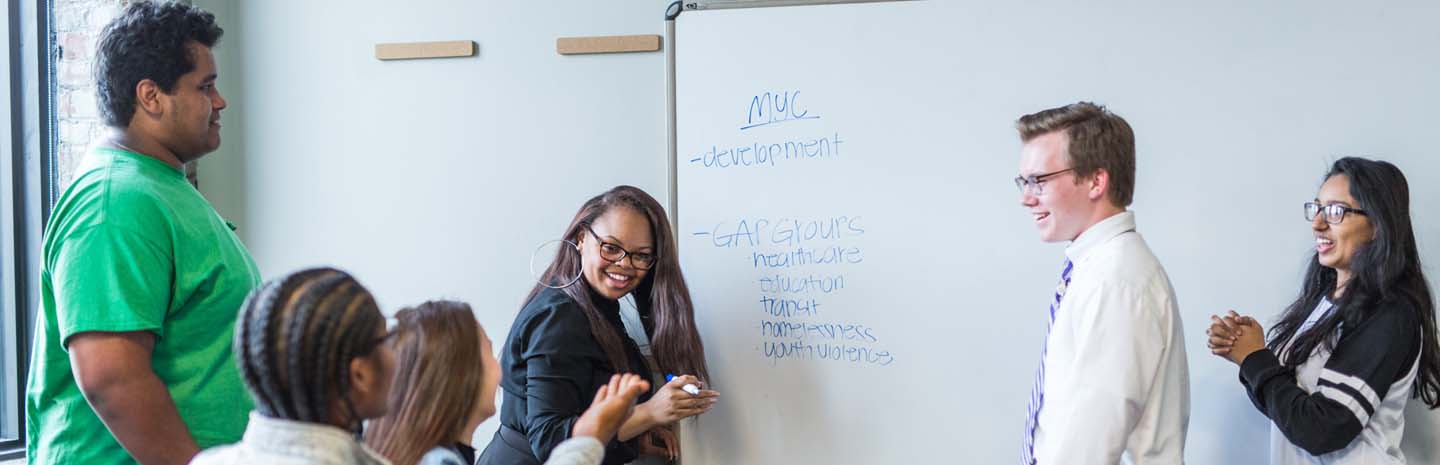 MYC
-development
-GAP Groups
·healthcare
·education
·transit
·homelessness
·youth violence